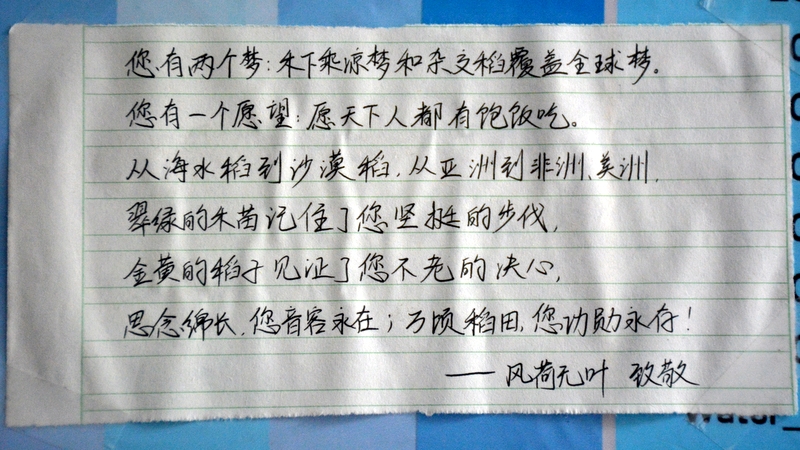 您有两个梦：禾下乘凉梦和杂交稻覆盖全球梦。
您有一个愿望：愿天下人都有饱饭吃。
从海水稻到沙漠稻，从亚洲到非洲、美洲，
翠绿的禾苗记住了您坚挺的步伐，
金黄的稻子见证了您不老的决心，
思念绵长，您音容永在；万顷稻田，您功勋永存！
——风荷无叶 致敬
Water_